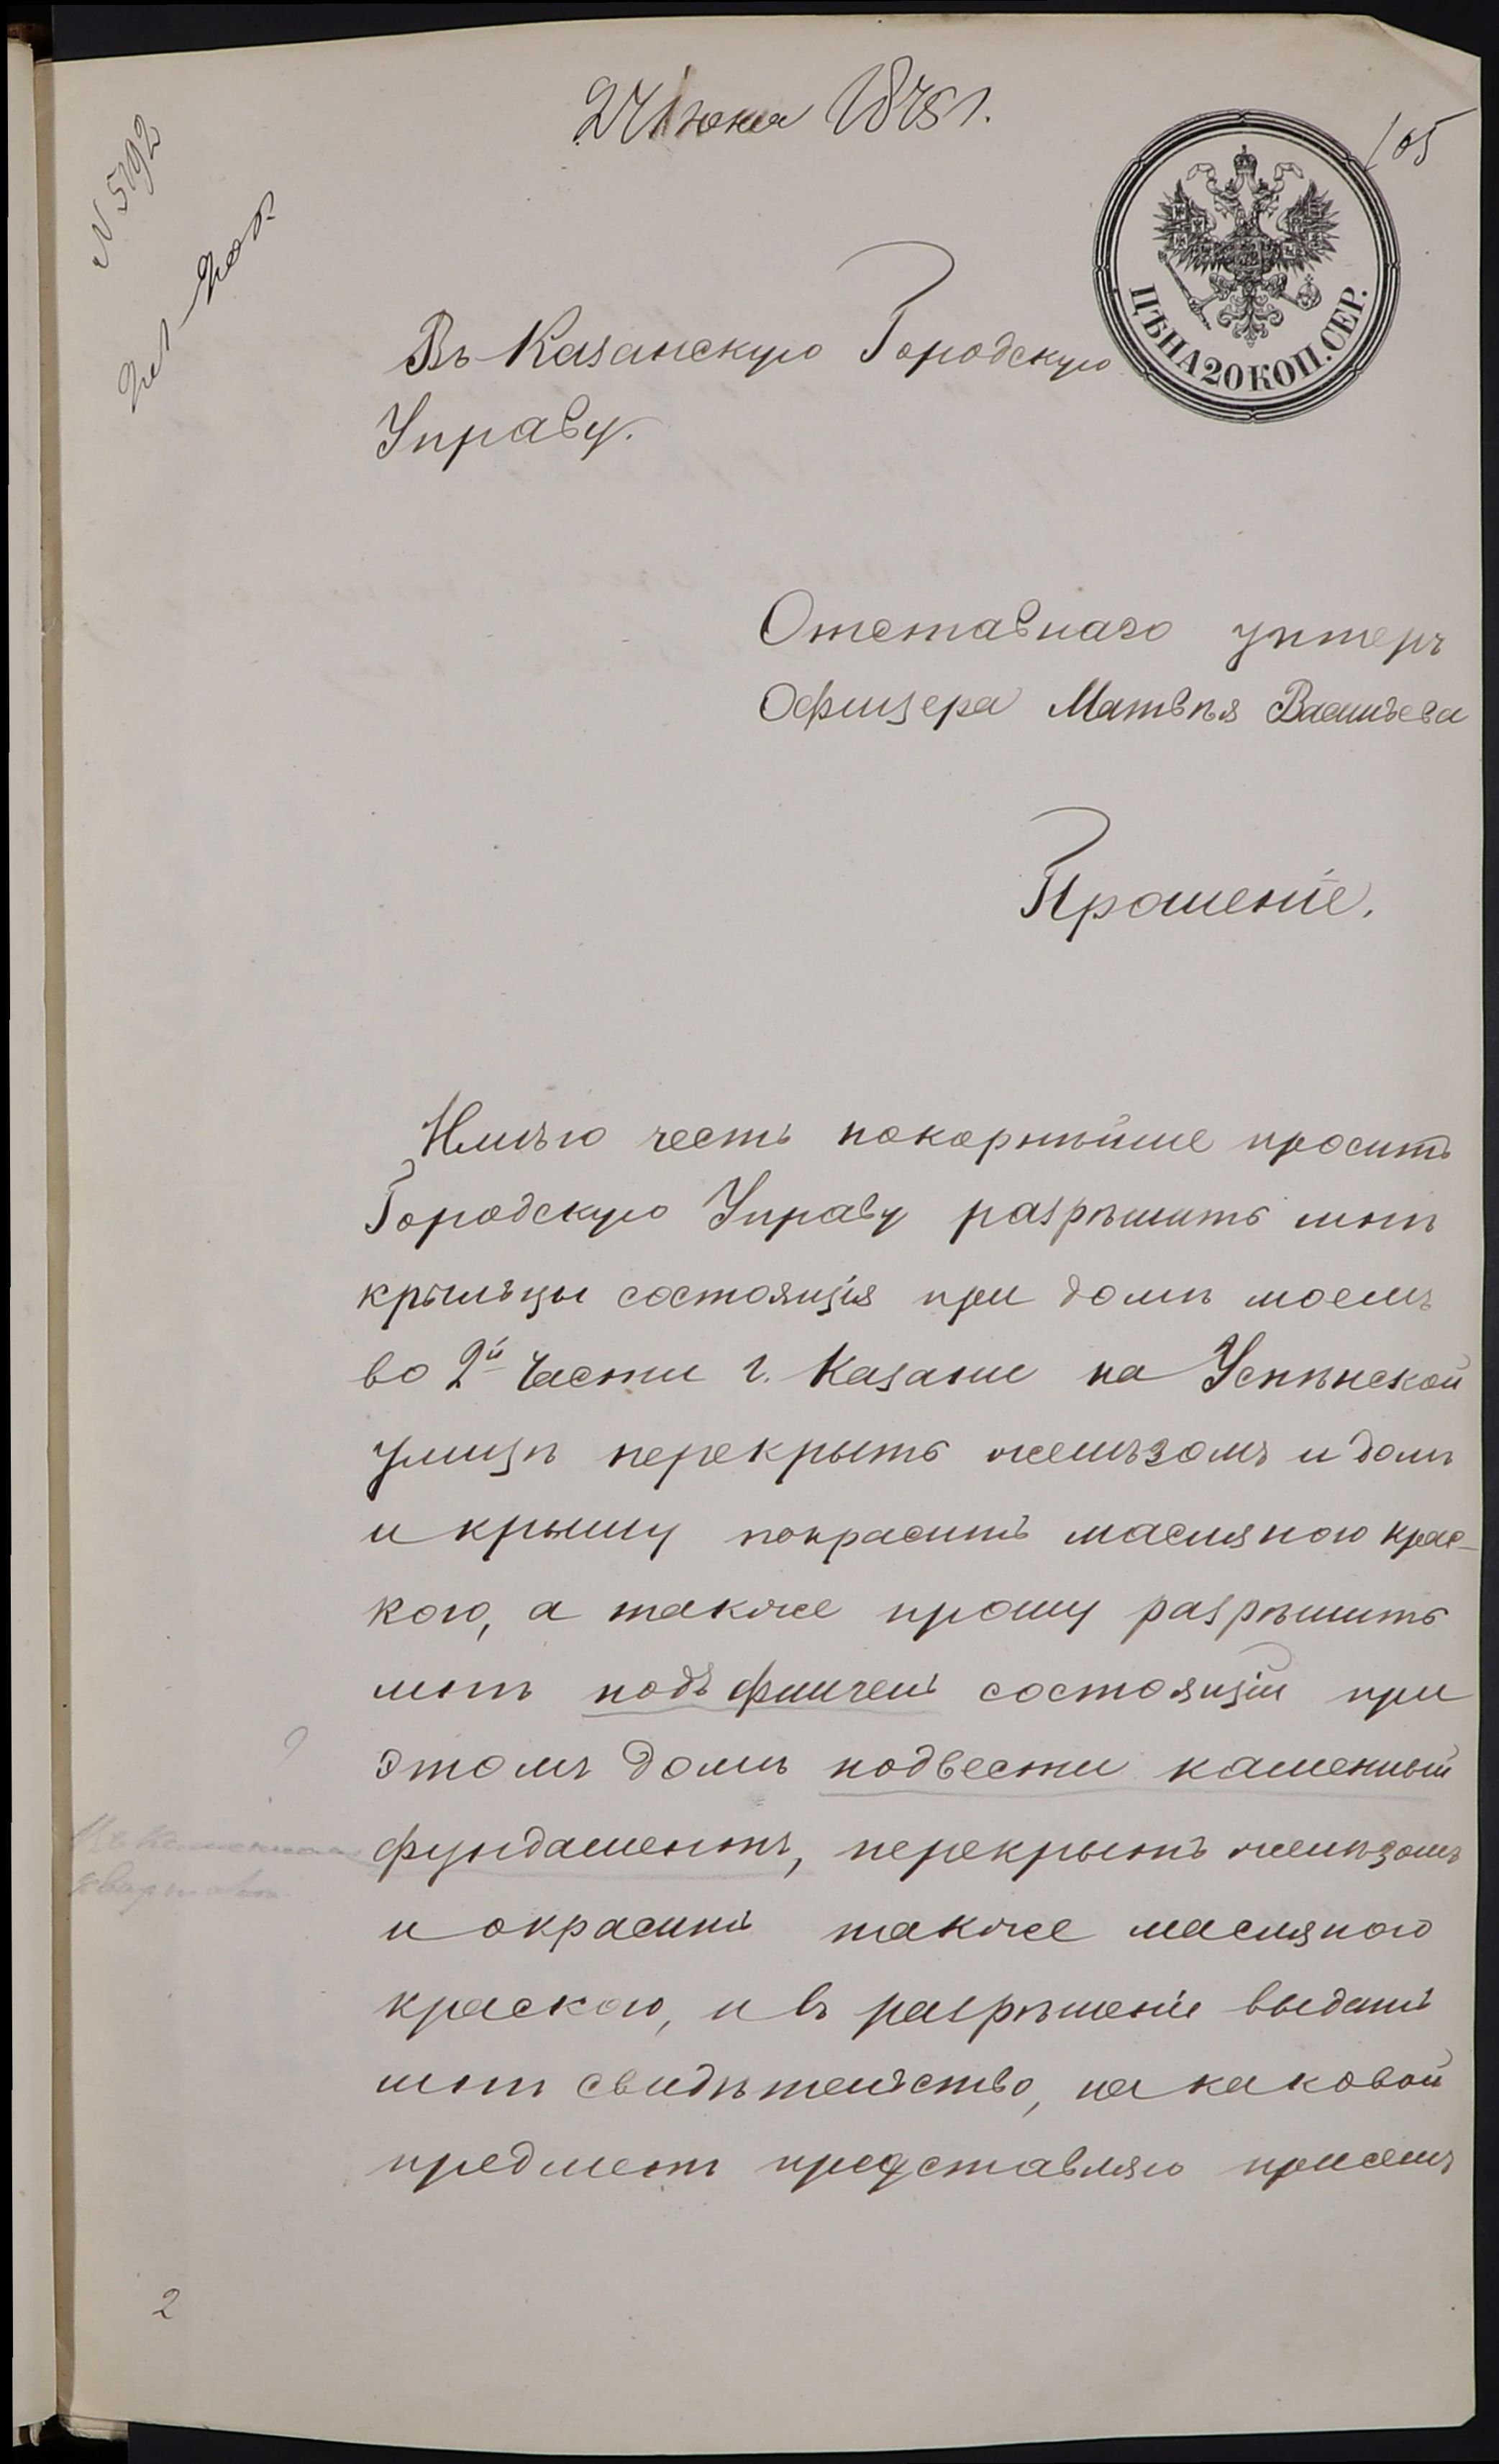 Іюня 187
105
N 5192
ЦѢНА 20 КОП. СЕР.
Въ Казанскую Городскую
Управу.
Отставнаго унтеръ
Офицера Матвѣя Васильева
Прошеніе.
Имѣю честь покорнѣйше просить
Городскую Управу разрѣшить мнѣ
крыльцы состоящія при домѣ моемъ
во 2й части г. Казани на Успѣнской
улицѣ перекрыть желѣзомъ и домъ
и крышу покрасить масляною крас-
кою, а также прошу разрѣшить
мнѣ подъ флигель состоящій при
этомъ домѣ подвести каменный
?
фундаментъ, перекрыть желѣзомъ
и окрасить также масляною
краскою, и въ разрѣшеніе выдать
мнѣ свидѣтельство, на каковой
предметъ представляю при семъ
2